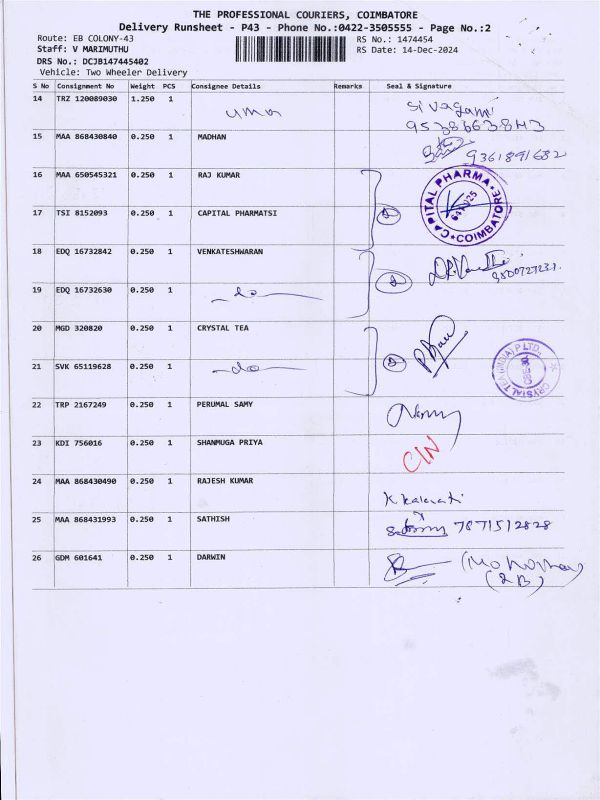 THE PROFESSIONAL COURIERS, COIMBATORE
Delivery Runsheet - P43 - Phone No.:0422-3505555 - Page No.:2
Route: EB COLONY-43 RS No.: 1474454
Staff: V MARIMUTHU RS Date: 14-Dec-2024
DRS No.: DCJB147445402
Vehicle: Two Wheeler Delivery
S No Consignment No Weight PCS Consignee Details Remarks Seal & Signature
14 TRZ 120089030 1.250 1 uma Sivagami
9538663843
15 MAA 868430840 0.250 1 MADHAN
9361891682
16 MAA 650545321 0.250 1 RAJ KUMAR
CAPITAL PHARMA COIMBATORE
17 TSI 8152093 0.250 1 CAPITAL PHARMATSI 2
18 EDQ 16732842 0.250 1 VENKATESHWARAN
19 EDQ 16732630 0.250 1 -do- 2
20 MGD 320820 0.250 1 CRYSTAL TEA
21 SVK 65119628 0.250 1 -do- 2 CRYSTAL TEA (INDIA) P LTD.,
22 TRP 2167249 0.250 1 PERUMAL SAMY
23 KDI 756016 0.250 1 SHANMUGA PRIYA CIN
24 MAA 868430490 0.250 1 RAJESH KUMAR
K kalavati
25 MAA 868431993 0.250 1 SATHISH 7871512828
26 GDM 601641 0.250 1 DARWIN
(2B)